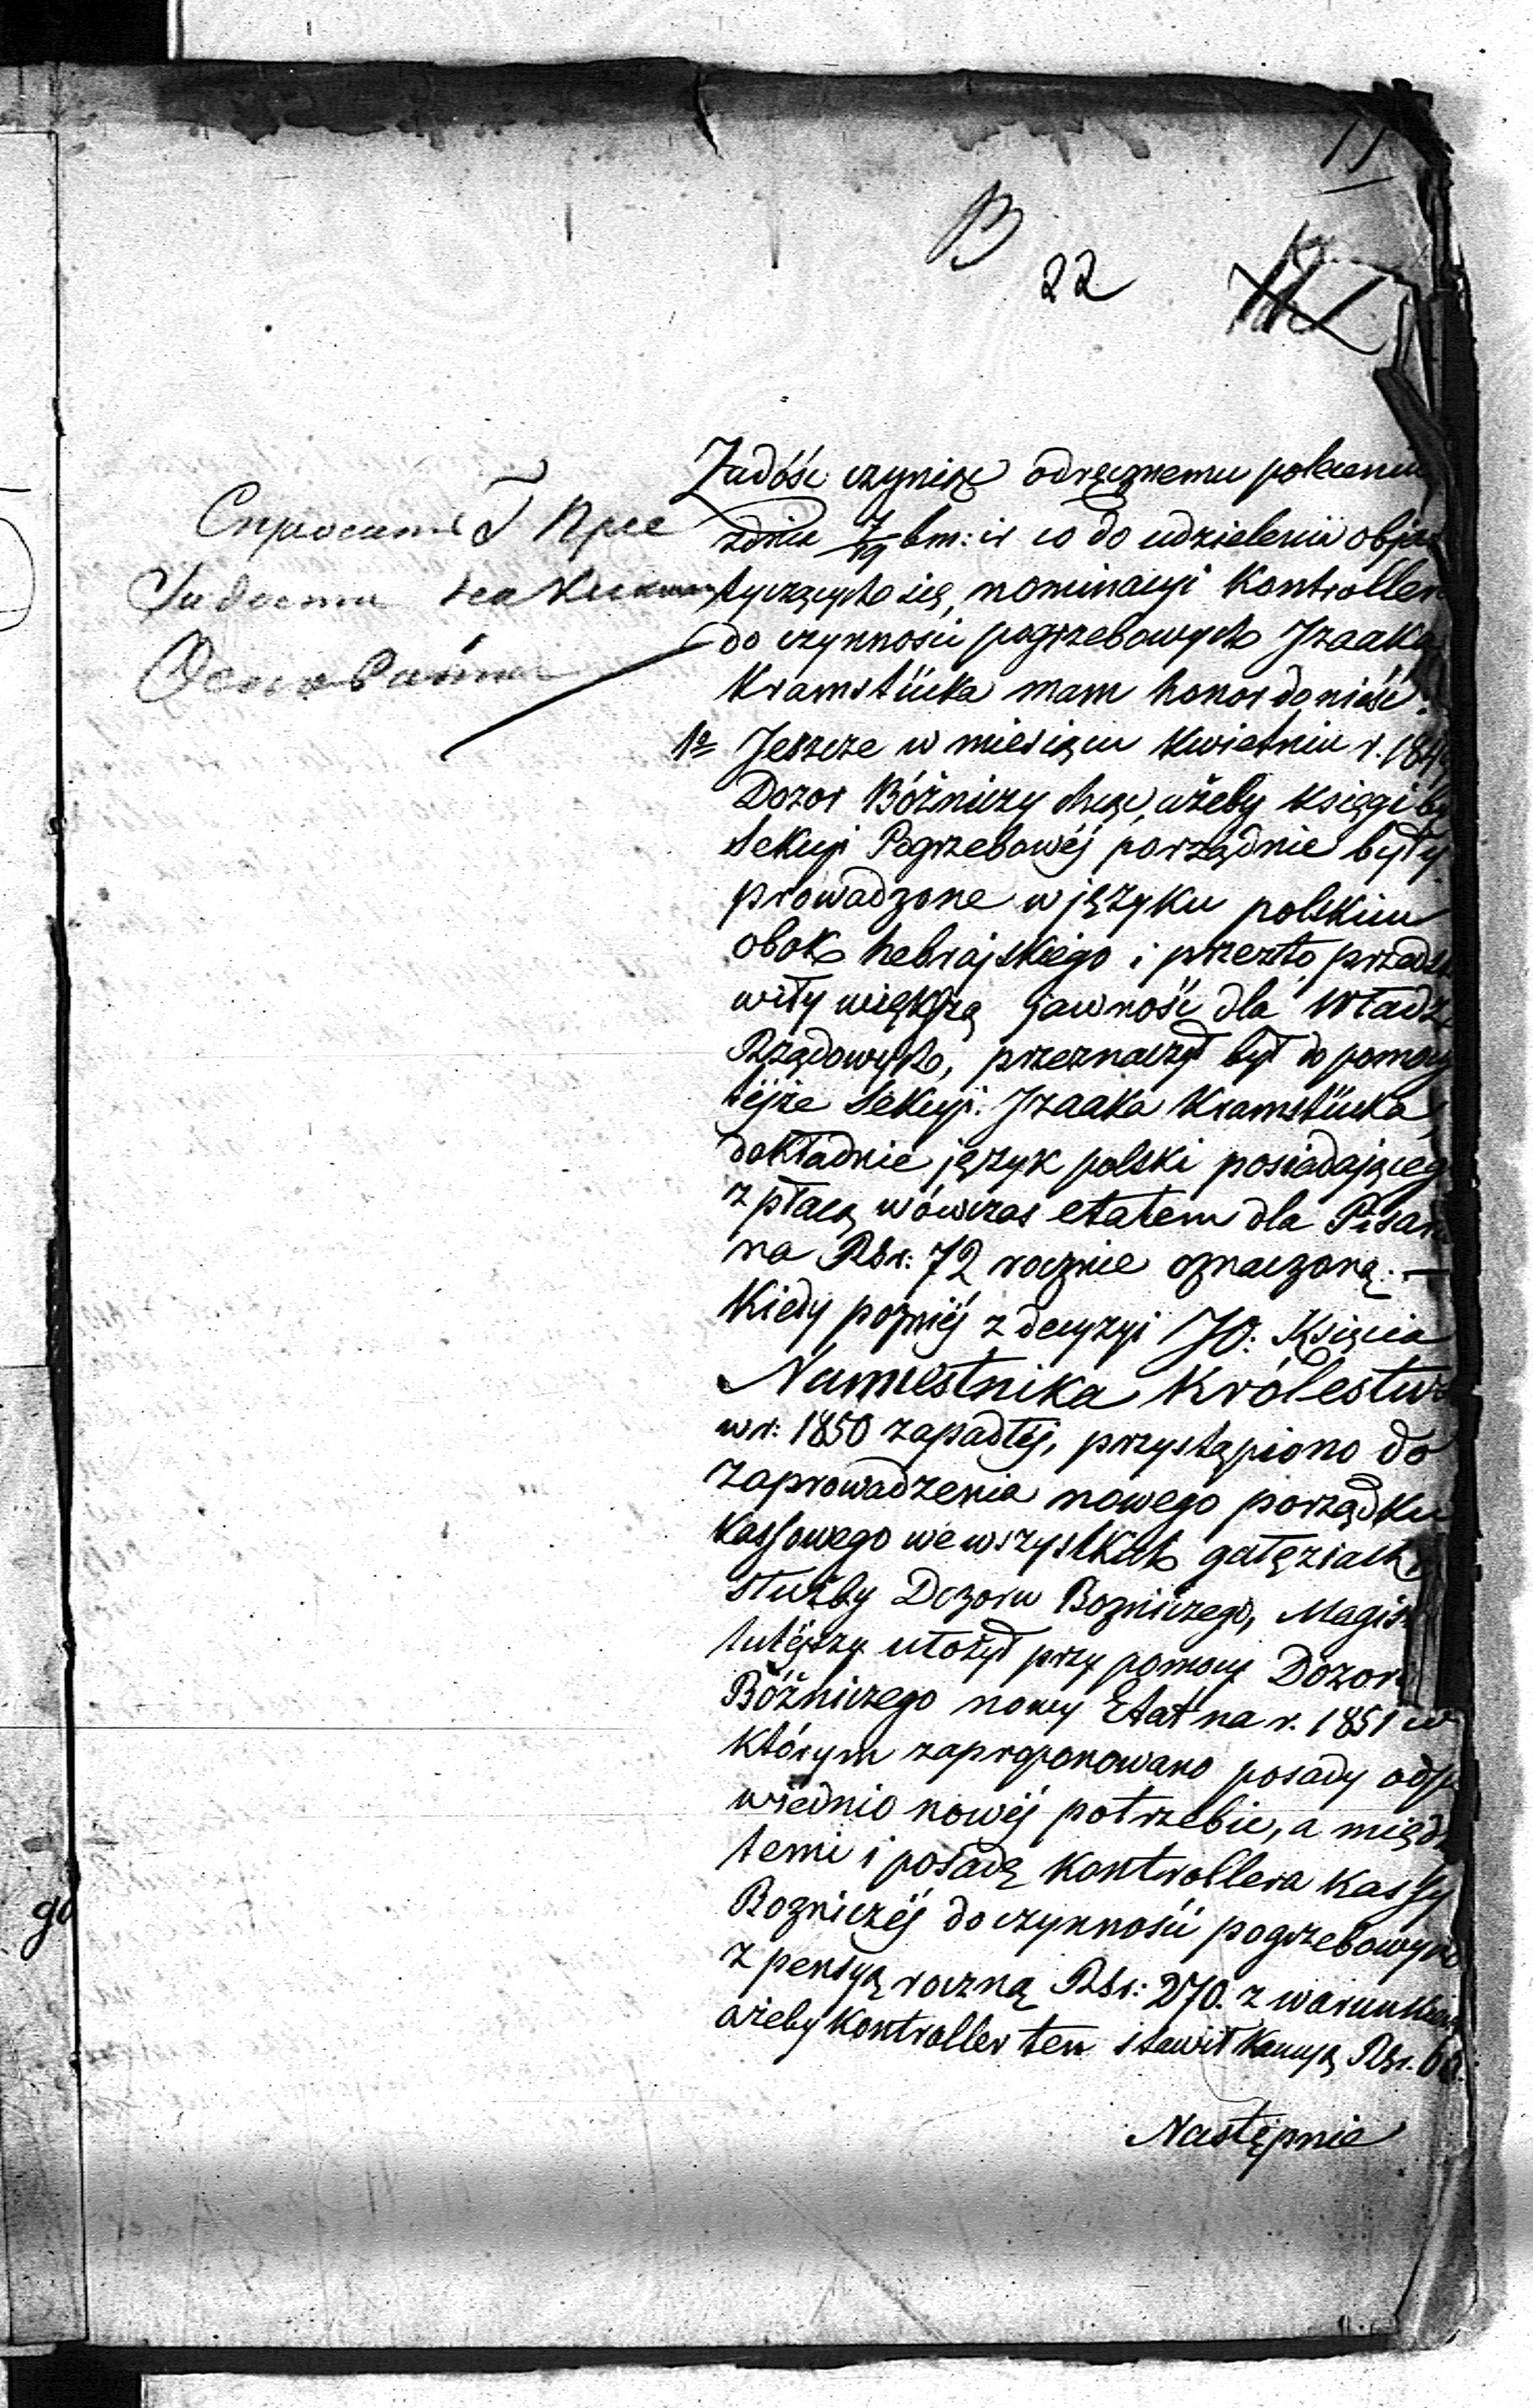 11
B
22
Спросить Г Пре
Основании
Zadość czyniąc odręcznemu poleceniu
zdnia 7/19 bm: ir co do udzielenia objaś
tyczących się, nominacyi Kontroller
do czynności pogrzebowych Izaaka
Kramstücka mam honor donieść.
1o Jeszcze w miesiącu Kwietniu r. 184
Dozor Bóźniczy chcąc, ażeby księgi
Sekcyi Pogrzebowéj porządnie były
prowadzone w języku polskim
obok hebrajskiego i przezto przedst
wiły większą jawność dla Władz
Rządowych, przeznaczył był do pomocy
téjże Sekcyi. Izaaka Kramstücka,
dokładnie język polski posiadającego
z płacą wówczas etatem dla Pisar
na Rsr: 72 rocznie oznaczoną. —
Kiedy poźniéj z decyzyi JO. Księcia
Namiestnika Królestwa
w r: 1850 zapadłéj, przystąpiono do
zaprowadzenia nowego porządku
Kassowego we wszystkich gałęziach
służby Dozoru Bozniczego, Magis
tutéjszy ułożył przy pomocy Dozoru
Bóźniczego nowy Etat na r. 1851 w
którym zaproponowano posady odpo
wiednio nowéj potrzebie, a międz
temi i posadę Kontrollera Kassy
Bozniczéj do czynności pogrzebowych
z pensyą roczną Rsr: 270. z warunkiem
ażeby Kontroller ten stawił Kaucyą Rsr. 60.
Następnie
go